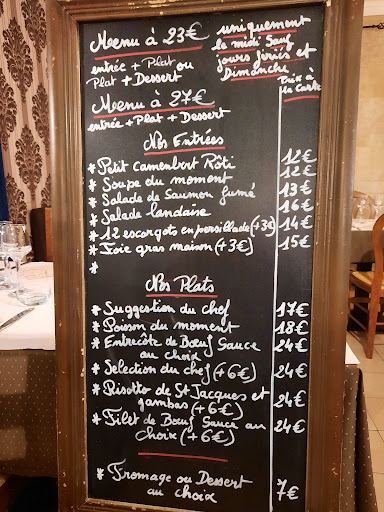 Menu à 23€
uniquement
le midi Sauf
jours fériés et
Dimanche
entrée + Plat ou
Plat + Dessert
Menu à 27€
entrée + Plat + Dessert
Prix à
la Carte
Nos Entrées
* Petit Camembert Rôti 12€
* Soupe du moment 12€
* Salade de Saumon fumé 13€
* Salade landaise 16€
* 12 escargots en persillade (+3€) 14€
* Foie gras maison (+3€) 15€
*
Nos Plats
* Suggestion du chef 17€
* Poisson du moment 18€
* Entrecôte de Bœuf Sauce
au choix 24€
* Selection du chef (+6€) 24€
* Risotto de St Jacques et
gambas (+6€) 24€
* Filet de Bœuf Sauce au 24€
Choix (+6€)
* Fromage ou Dessert
au choix 7€